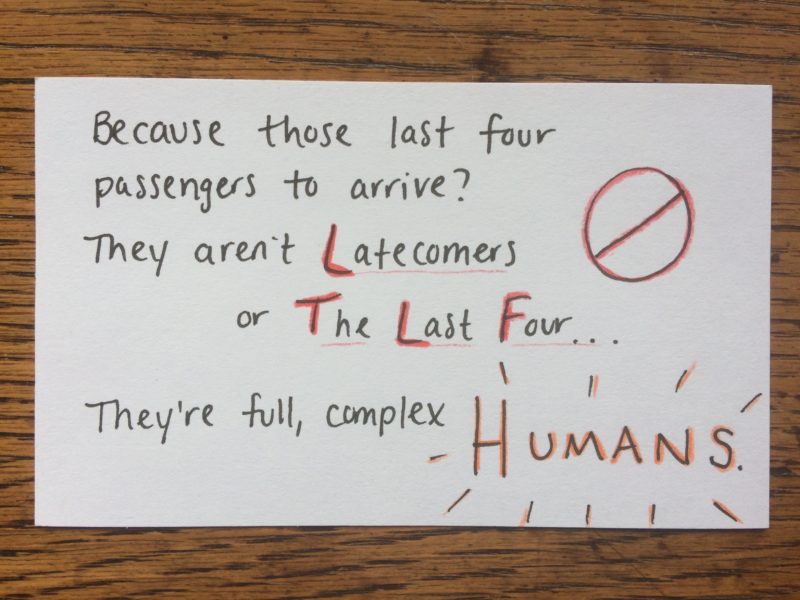 Because those last four
passengers to arrive?
They aren't Latecomers
or The Last Four...
They're full, complex HUMANS.